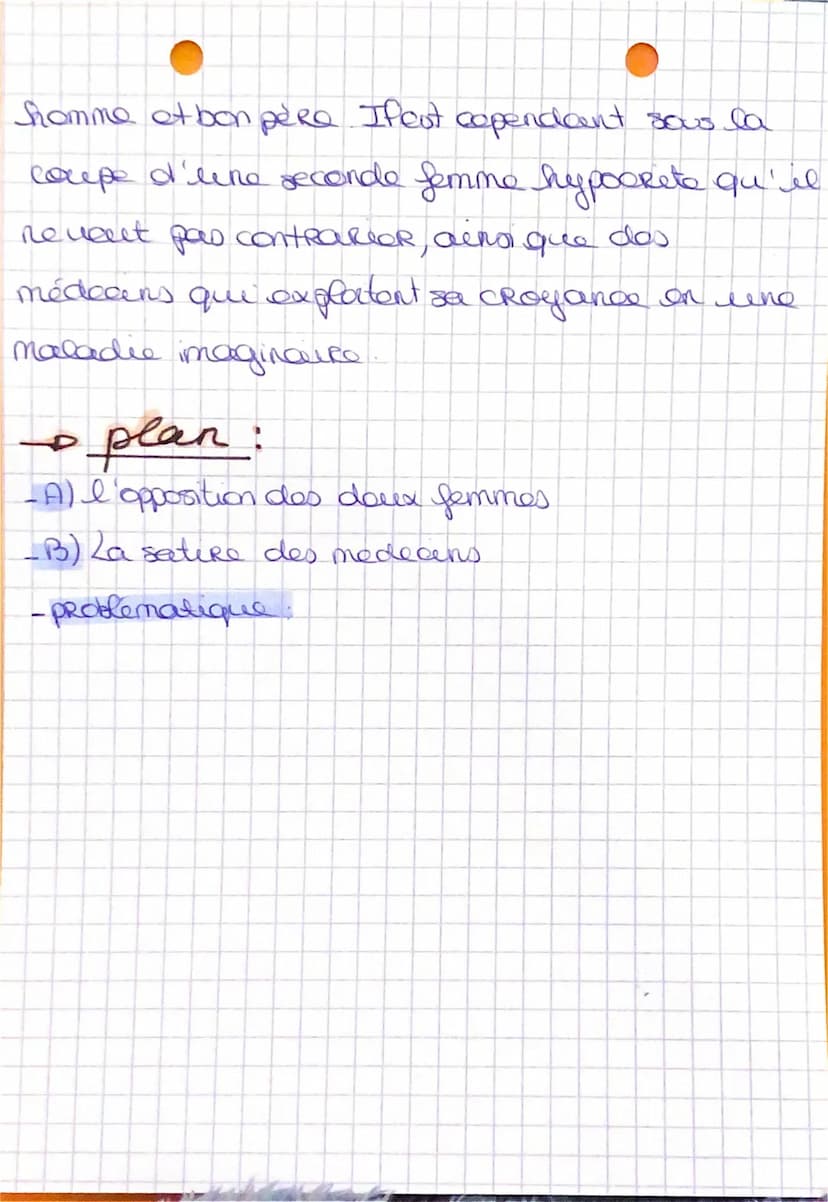 homme et bon père. Il est cependant sous la
coupe d'une seconde femme hypocrite qu'il
ne veut pas contrarier, ainsi que des
médecins qui exploitent sa croyance en une
maladie imaginaire.
→ plan :
- A) l'opposition des deux femmes
- B) La satire des medecins
- problématique :